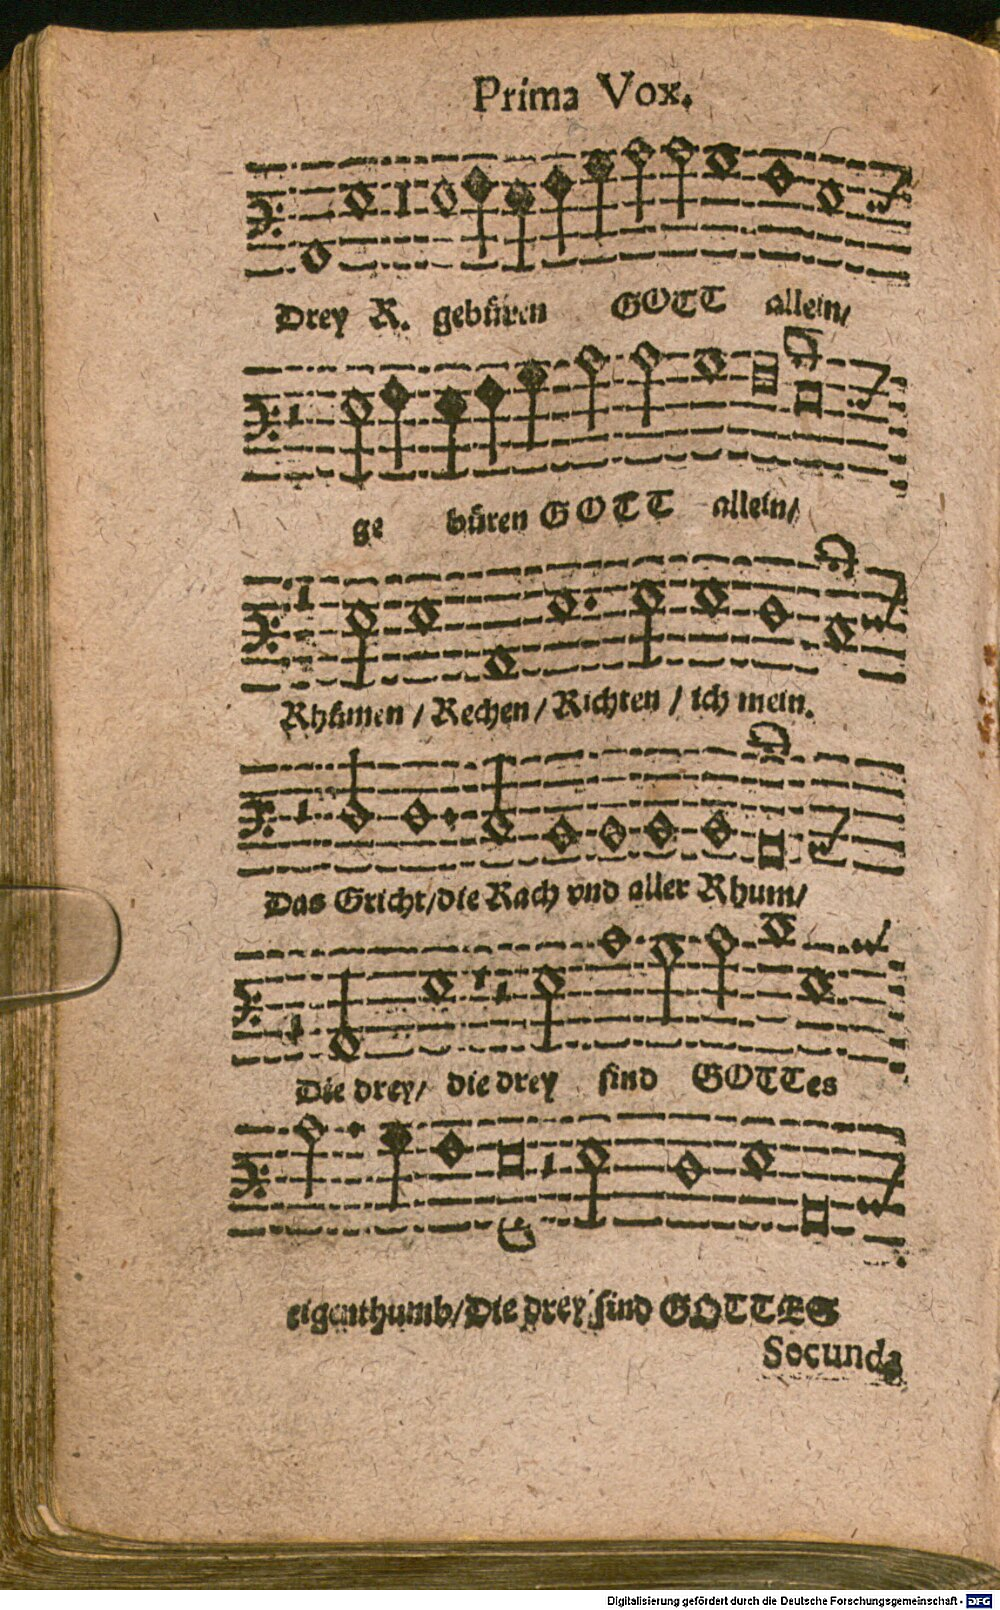 Prima Vox.
Drey R. gebüren GOTT allein/
ge büren GOTT allein/
Rhümen / Rechen / Richten / ich mein.
Das Gricht/die Rach vnd aller Rhum/
Die drey/ die drey sind GOTTes
eigenthumb/Die drey sind GOTTES
Secunda
Digitalisierung gefördert durch die Deutsche Forschungsgemeinschaft - DFG